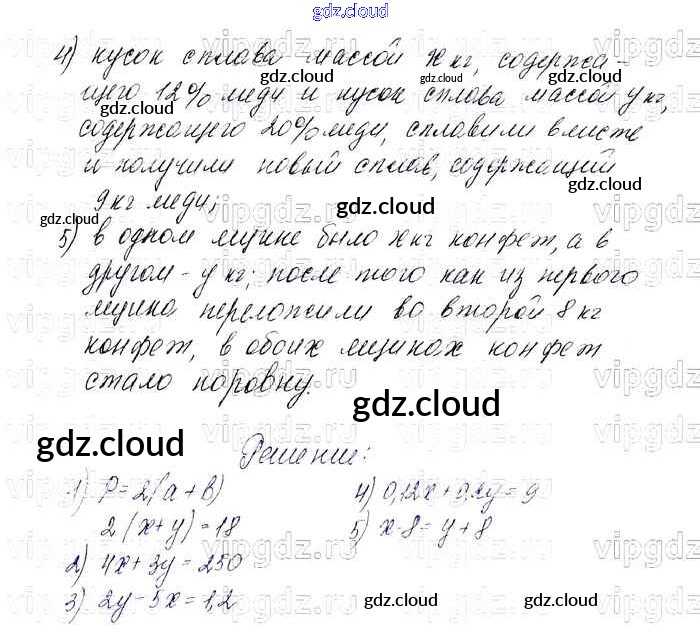 gdz.cloud
4) кусок сплава массой x кг, содержа-
щего 12% меди и кусок сплава массой y кг,
содержащего 20% меди, сплавили вместе
и получили новый сплав, содержащий
9 кг меди;
5) в одном ящике было x кг конфет, а в
другом - y кг; после того как из первого
ящика переложили во второй 8 кг
конфет, в обоих ящиках конфет
стало поровну.
gdz.cloud
gdz.cloud
Решение:
1) P = 2(a + b)
2(x + y) = 18
2) 4x + 3y = 250
3) 2y - 5x = 1,2
4) 0,12x + 0,2y = 9
5) x - 8 = y + 8
gdz.cloud
gdz.cloud